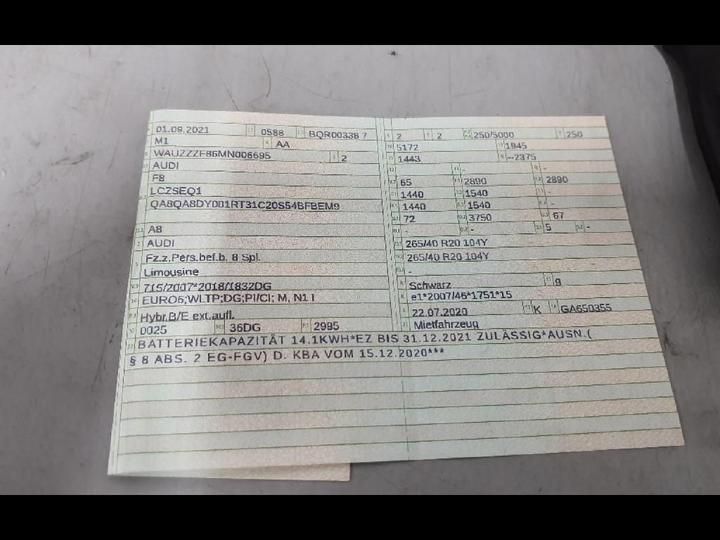 01.09.2021 0588 BQR00338 7
M1 AA
WAUZZZF86MN006695 2
AUDI
F8
LCZSEQ1
QA8QA8DY001RT31C20S54BFBEM9
A8
AUDI
Fz.z.Pers.bef.b. 8 Spl.
Limousine
715/2007*2018/1832DG
EURO6;WLTP;DG;PI/CI; M, N1 I
Hybr.B/E ext.aufl.
0025 36DG 2995
BATTERIEKAPAZITÄT 14.1KWH*EZ BIS 31.12.2021 ZULÄSSIG*AUSN.(
§ 8 ABS. 2 EG-FGV) D. KBA VOM 15.12.2020***
2 2 250/5000 250
5172 1945
1443 --2375
- - -
65 2890 2890
1440 1540 -
1440 1540 -
72 3750 67
- - 5 -
265/40 R20 104Y
265/40 R20 104Y
-
Schwarz 9
e1*2007/46*1751*15
22.07.2020 K GA650355
Mietfahrzeug